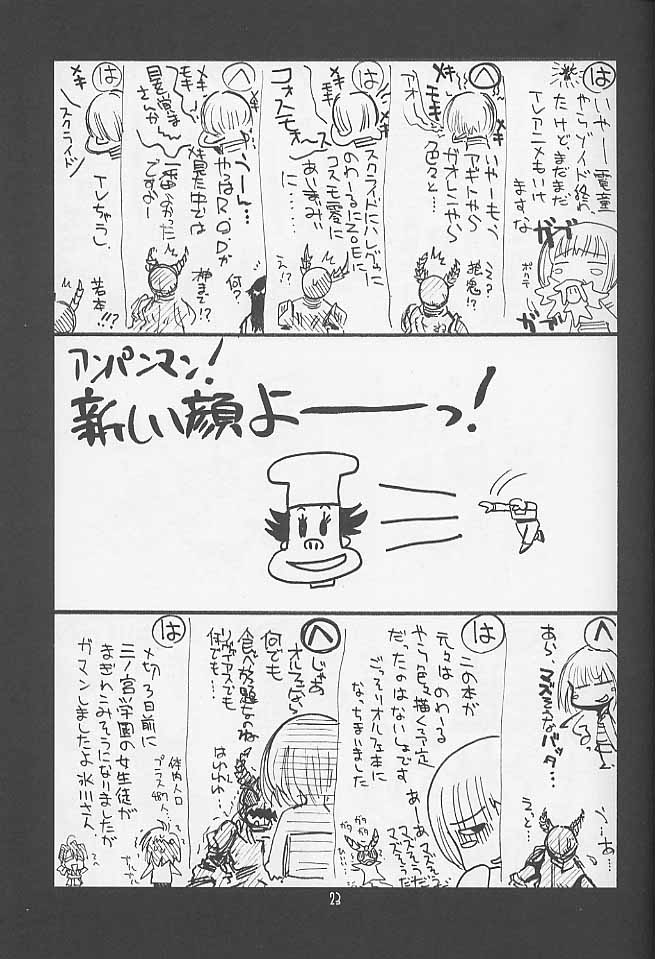 は
いやー電童
やらゾイド終わ
たけど、まだまだ
TVアニメもいけ
ますな
ガブ
ポクテ
ガブ
へ
メキ
モキ
メキ
アオ
いやーもう
アギトやら
ガオレンやら
色々と…
え?
餓鬼!?
は
メキ
メキ
コォスモォース
スクライドにハレグゥに
のわーるにZOEに
コスモ愛に
あいまみい
に……
え!?
へ
メキ
メキ
見た覚え
さんか
うーん…
やっぱR.O.Dが
見た中では
一番よかった
ですよー
何?
神まで!?
は
メキ
メキ
スクライド
TVちゃう。
若本!?
アンパンマン!
新しい顔よーーーっ!
へ
あら、マズそなバッタ…
う…あ。
えっと…
は
この本が
元々はのわーる
やら色々描く予定
だったのはないしょです
ごっそりオルフェ本に
なっちまいました
あーあマズそうだ
マズそうだ
マズそうだ
ガタ
ガタ
ガタ
ひいぃ
へ
じゃあ
オルフェなら
何でも
食べ放題なのね
リヴァアスでも
何でも…
はわわわ
は
〆切3日前に
三ノ宮学園の女生徒が
まぎれこみそうになりましたが
ガマンしましたよ氷川さん
体内人口
プラス487人…
23